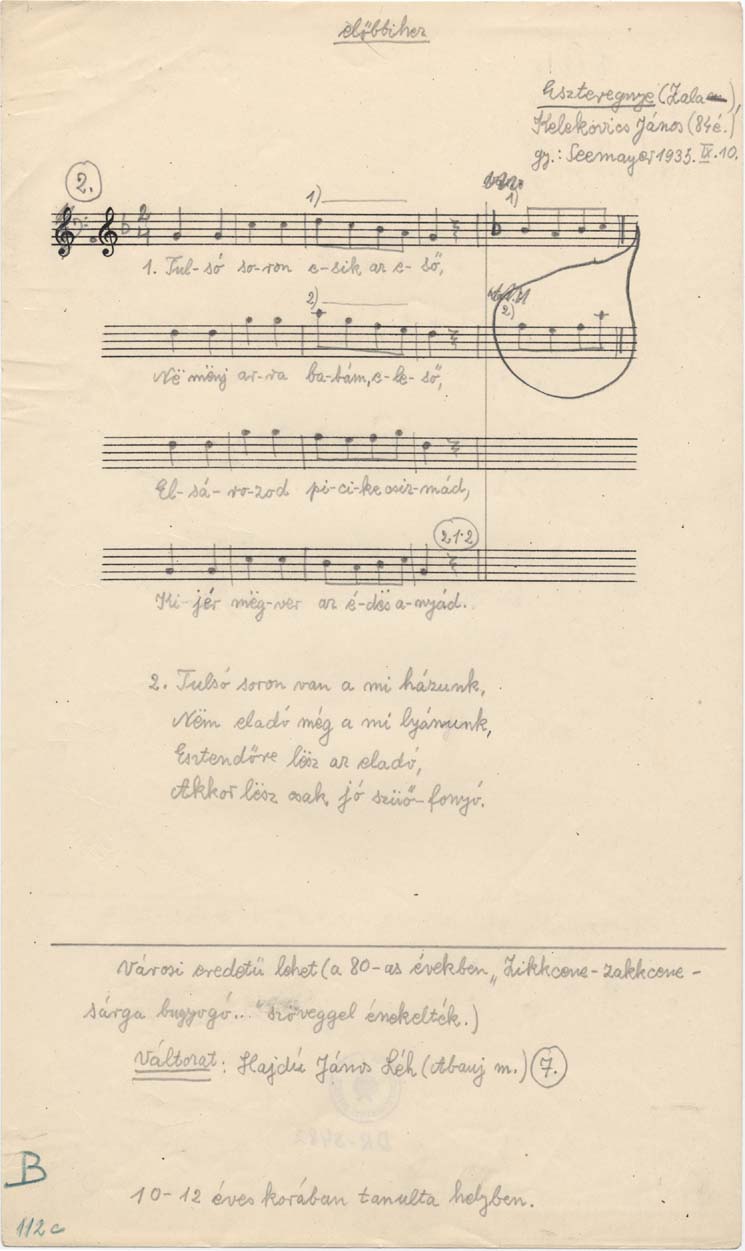 előbbihez
Eszteregnye (Zala),
Kelekovics János (84é.)
gy.: Seemayer 1935. IX. 10.
2.
1)
1)
2
4
1. Tul-só so-ron e-sik az e-ső,
2)
2)
Në mënj ar-ra ba-bám, e-le-ső,
El-sá-ro-zod pi-ci-ke csiz-mád,
212
Ki-jér mëg-ver az é-dës a-nyád.
2. Tulsó soron van a mi házunk,
Nëm eladó még a mi lyánunk,
Esztendőre lësz az eladó,
Akkor lësz csak jó szüő-fonyó.
Városi eredetű lehet (a 80-as években „Zikkcene-zakkcene-
sárga buggyogó..." szöveggel énekelték.)
Változat: Hajdú János Léh (Abauj m.) 7.
10-12 éves korában tanulta helyben.
B
112c